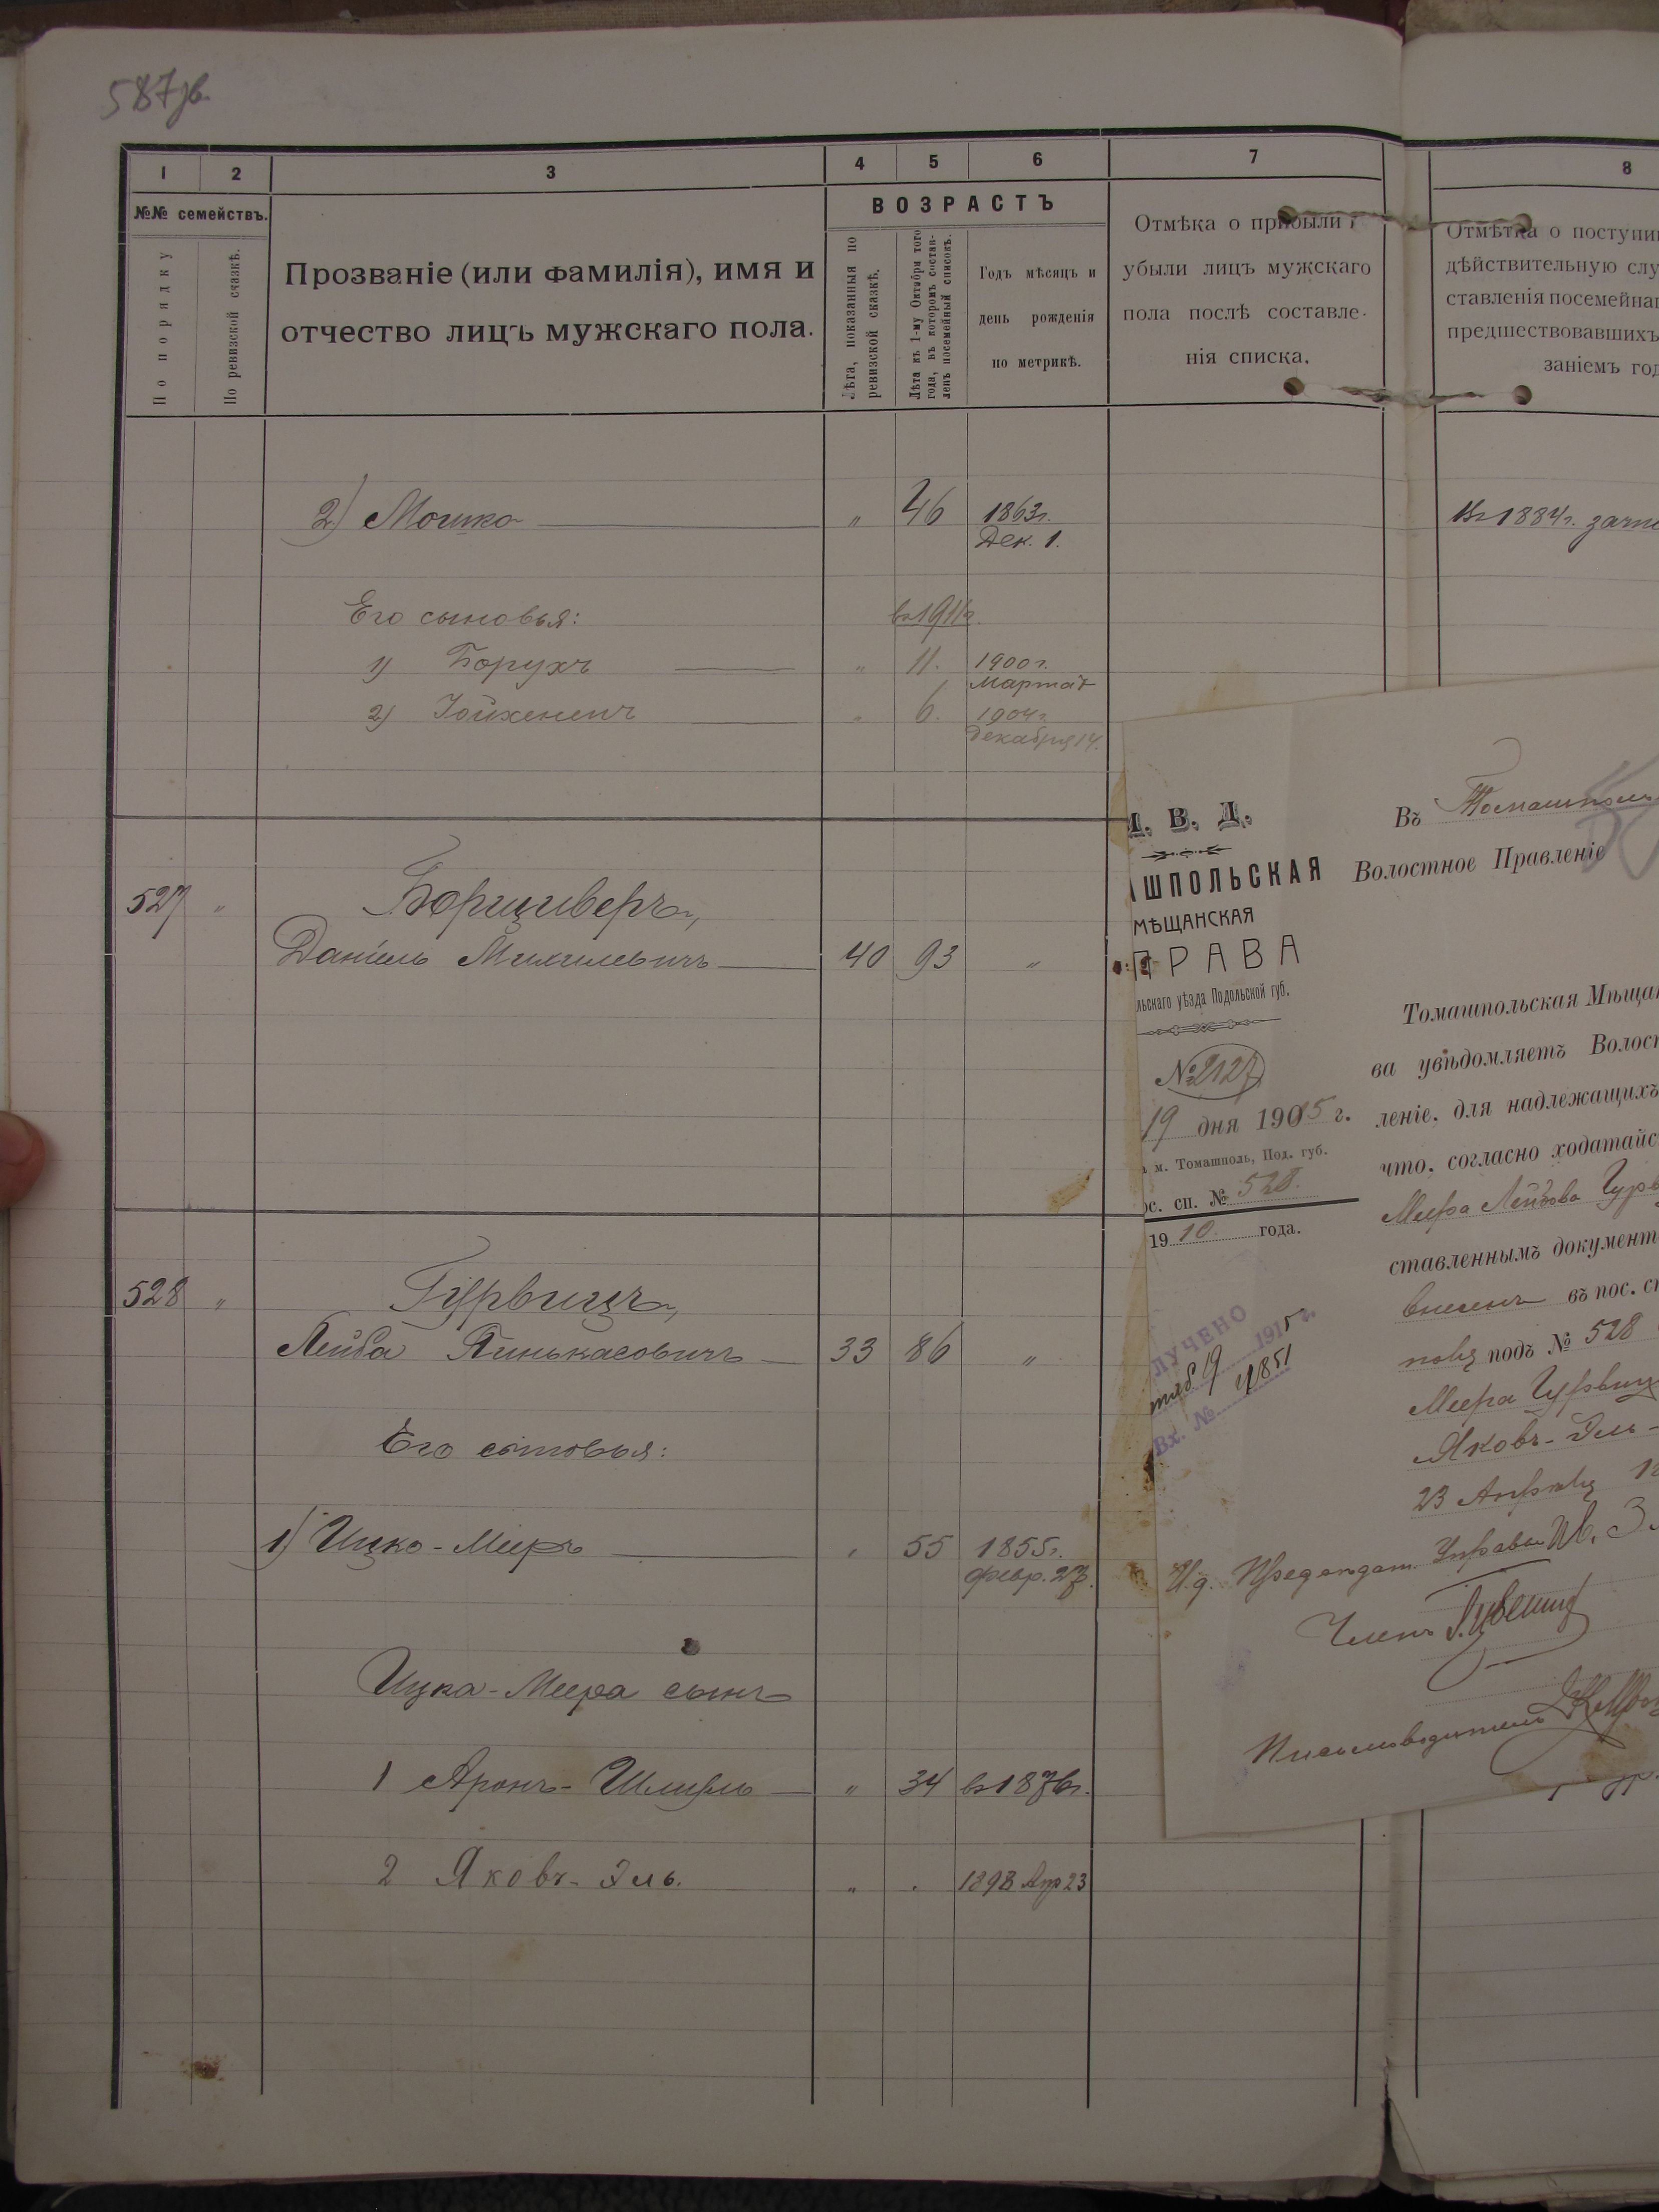 587зв.
1 2 3 4 5 6 7 8
№№ семействъ.
По порядку
По ревизской сказкѣ.
Прозваніе (или фамилія), имя и
отчество лицъ мужскаго пола.
ВОЗРАСТЪ
Лѣта, показанныя по
ревизской сказкѣ.
Лѣта къ 1-му Октября того
года, въ которомъ состав-
ленъ посемейный списокъ.
Годъ мѣсяцъ и
день рожденія
по метрикѣ.
Отмѣка о прибыли
убыли лицъ мужскаго
пола послѣ составле-
нія списка.
Отмѣтка о поступи
дѣйствительную слу
ставленія посемейна
предшествовавшихъ
заніемъ год
2) Мошко „ 46 1863г.
Дек. 1.
Въ 1884г. зачи
Его сыновья: въ 1911г.
1) Борухъ „ 11. 1900г.
Марта
2) Іойхененъ „ 6. 1904г.
Декабря 14.
527 „ Борщиверъ,
Даніель Михилевичъ 40 93 „
528 „ Гурвицъ,
Лейба Пинькасовичъ 33 86 „
Его сыновья:
1) Ицко-Меиръ „ 55 1855г.
Февр. 27.
Ицка-Меера сынъ
1 Аронъ-Шмиль „ 34 въ 1876г.
2 Яковъ-Эль. „ . 1898 Апр 23
М. В. Д.
АШПОЛЬСКАЯ
МѢЩАНСКАЯ
ПРАВА
льскаго уѣзда Подольской губ.
№ 2127
19 дня 1915 г.
м. Томашполь, Под. губ.
ос. сп. № 528.
19 10 года.
ЛУЧЕНО
19 1915 г.
Вх. № 4851
Въ Томашполь
Волостное Правленіе
Томашпольская Мѣща
ва увѣдомляетъ Волост
леніе, для надлежащихъ
что, согласно ходатайс
Меера Лейбова Гурв
ставленнымъ документ
внесенъ въ пос. сп
подъ № 528
Меера Гурвиц
Яковъ-Эль-
23 Апрѣля 18
И.д. Предсѣдат. Управы
Членъ
Письмоводитель